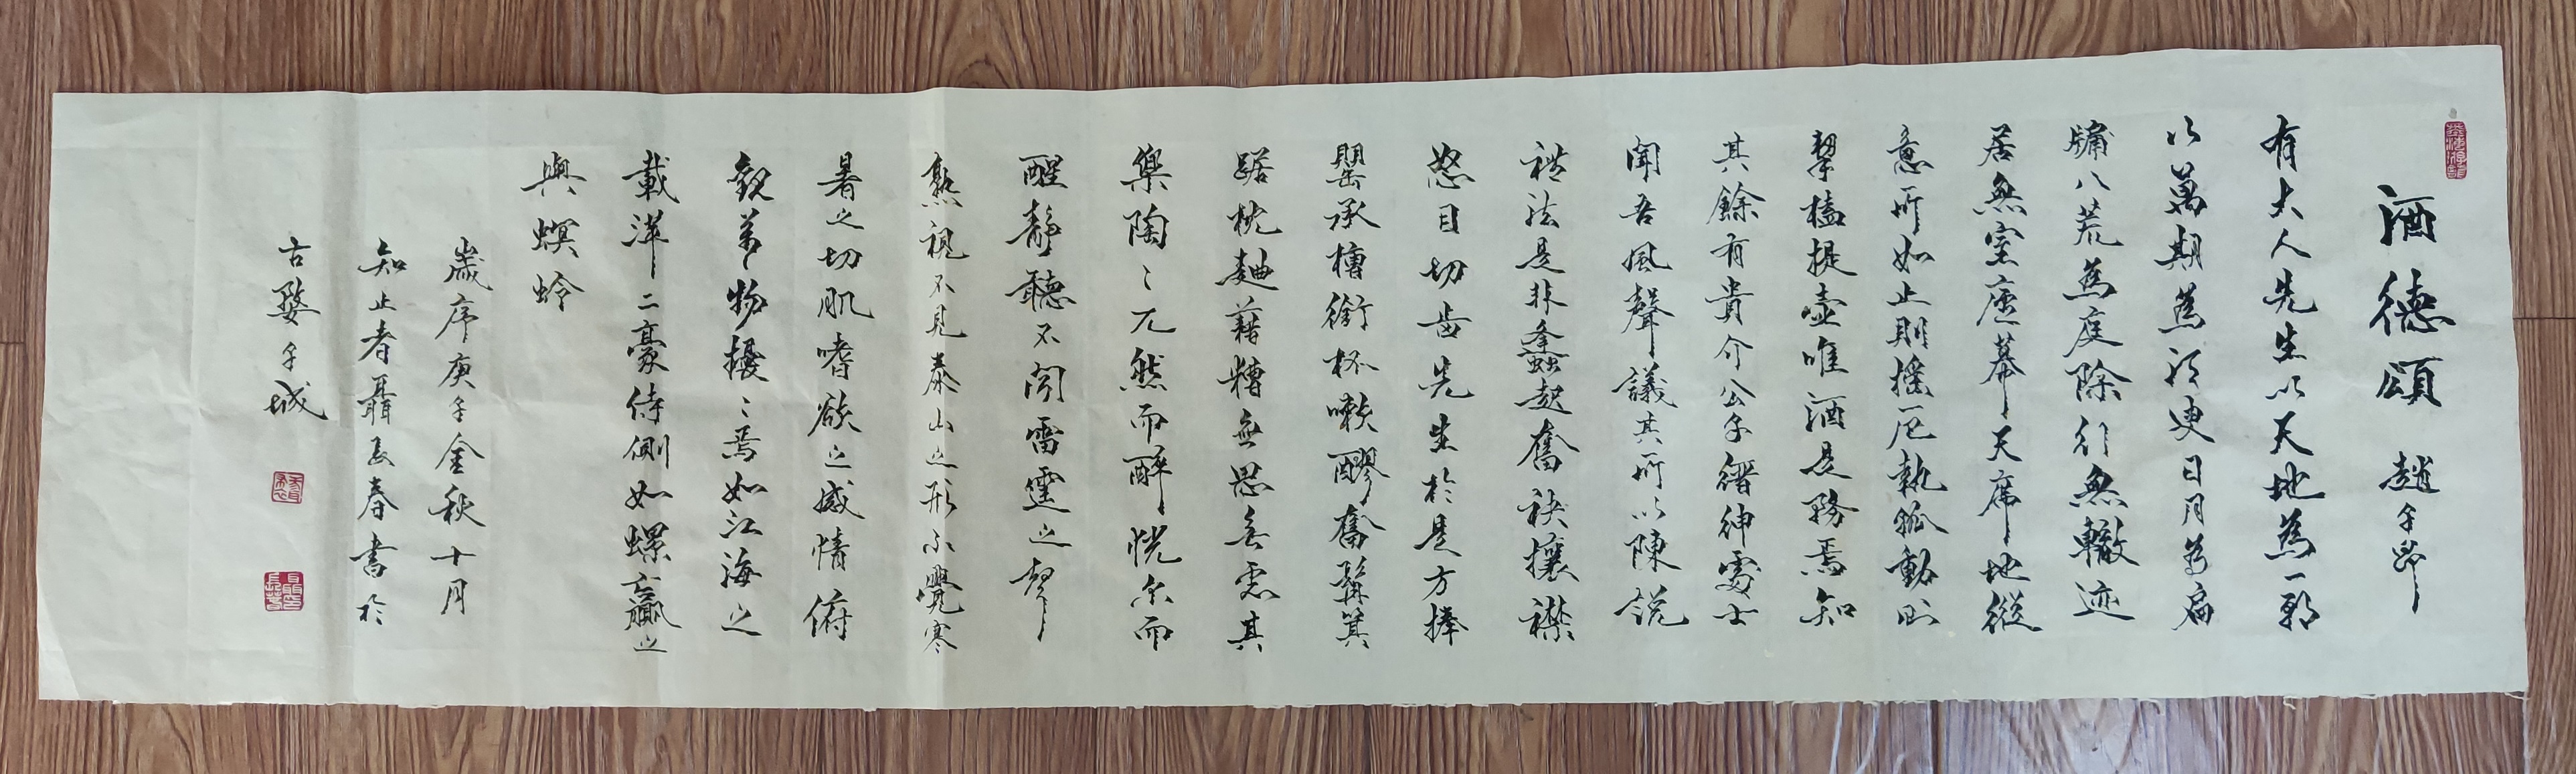 酒德頌 趙子昂
有大人先生以天地為一朝
以萬期為須臾日月為扃
牖八荒為庭除行無轍迹
居無室廬幕天席地縱
意所如止則操卮執觚動則
挈榼提壺唯酒是務焉知
其餘有貴介公子縉紳處士
聞吾風聲議其所以陳說
禮法是非鋒起奮袂攘襟
怒目切齒先生於是方捧
罌承槽銜杯嗽醪奮髯箕
踞枕麯藉糟無思無慮其
樂陶〻兀然而醉恍尔而
醒靜聽不聞雷霆之聲
熟視不見泰山之形不覺寒
暑之切肌嗜欲之感情俯
觀萬物擾〻焉如江海之
載萍二豪侍側如螺蠃之
與螟蛉
歲序庚子金秋十月
知止者聶長春書於
古婺子城